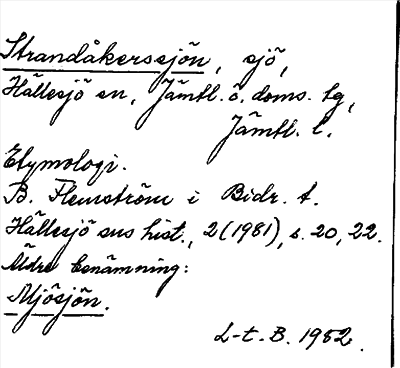 Strandåkerssjön, sjö,
Hällesjö sn, Jämtl. ö. doms. tg,
Jämtl. l.
Etymologi.
B. Flemström i Bidr. t.
Hällesjö sns hist., 2 (1981), s. 20, 22.
Äldre benämning:
Mjösjön.
L-t. B. 1982.